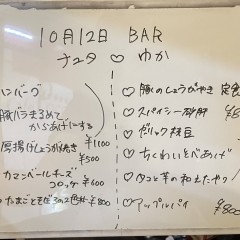 10月12日 BAR
ナユタ ♡ ゆか
ハンバーグ
豚バラまるめて
からあげにする
¥1100
厚揚げしょうが焼き
¥500
カマンベールチーズ
コロッケ ¥600
¥800
♡ 豚のしょうがやき 定食
♡ スパイシー砂肝
♡ ガリック枝豆
♡ ちくわいそべあげ
♡ タコと芋の和えたやつ
♡ アップルパイ
¥800